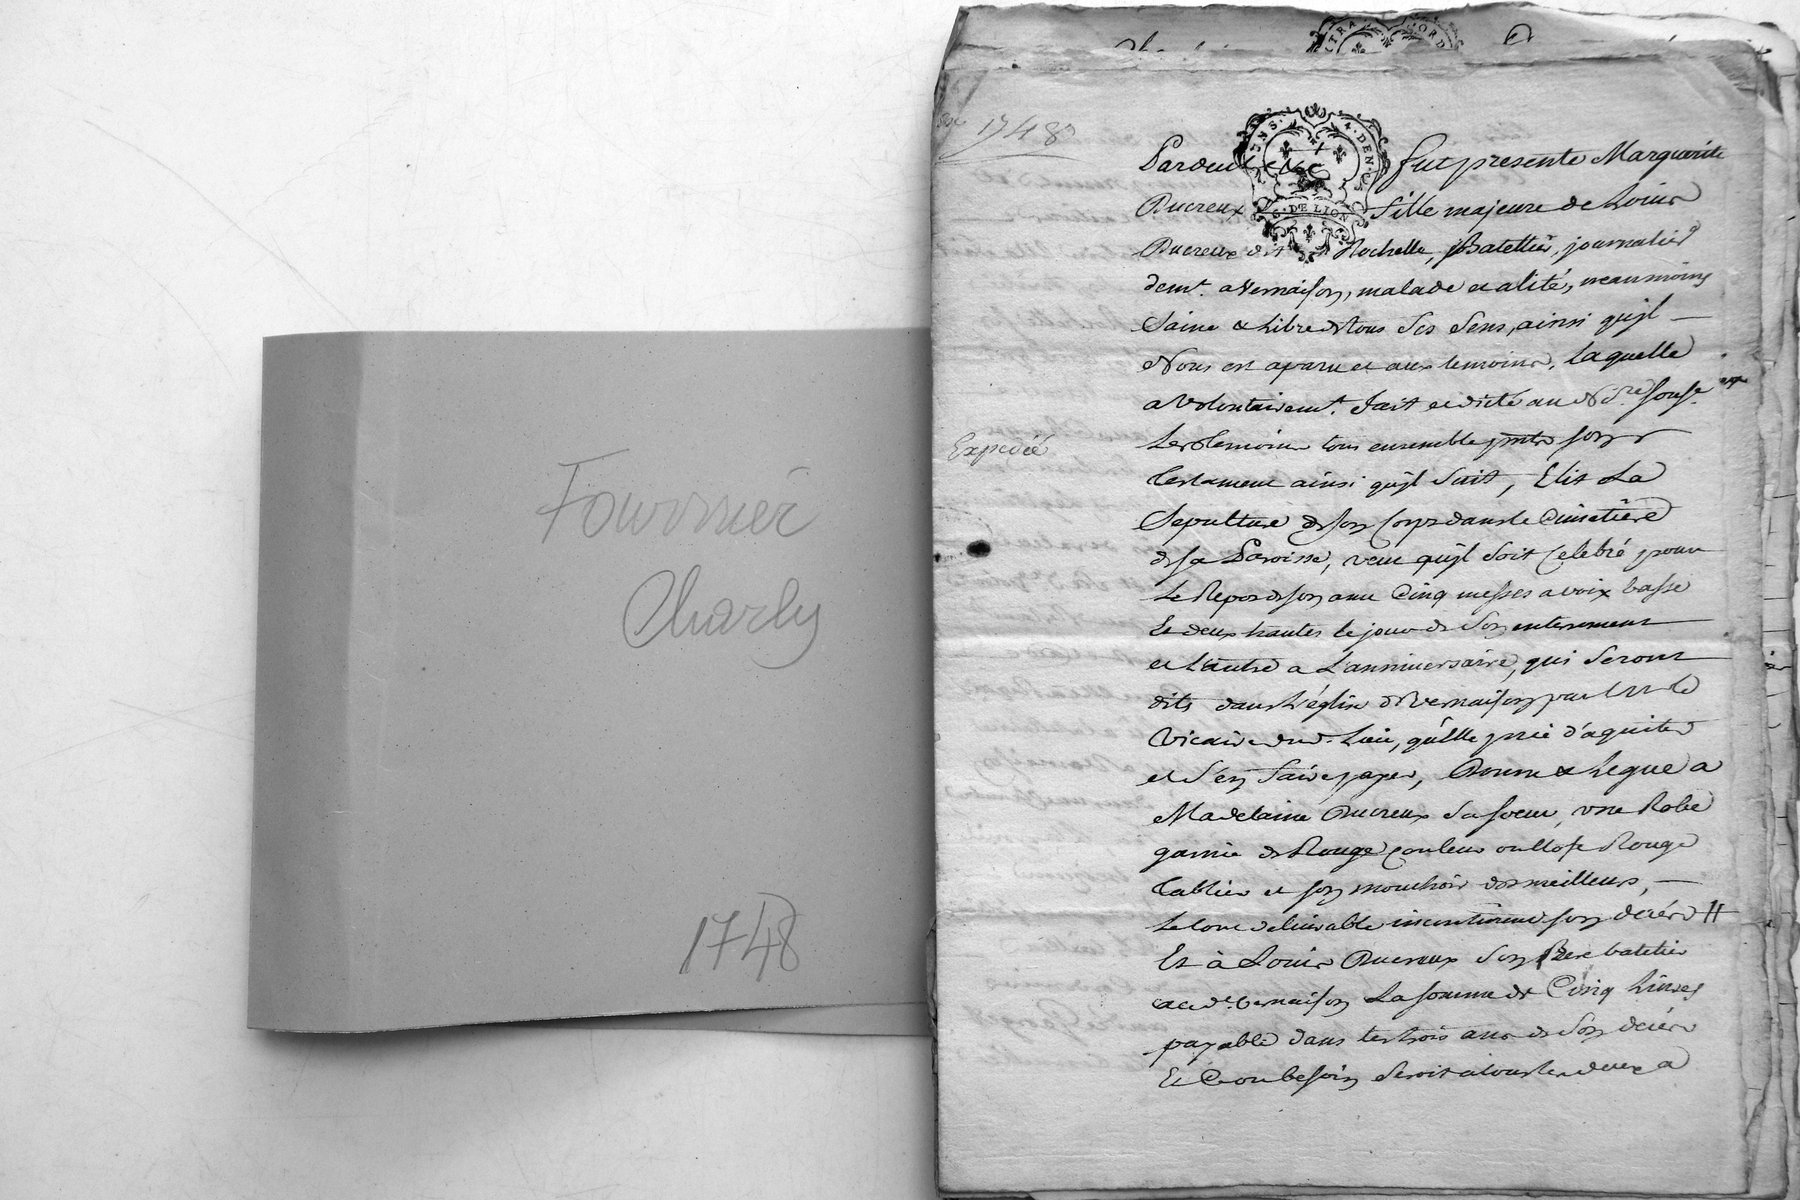 Fournier
Charly
1748
1748
Expediée
4. DEN.
G. DE LION
Pardevant fut presente Marguerite
Ducreux fille majeure de Louis
Ducreux dit Rochelle, Batellier, journalier
demt. a Vernaison, malade et alité, neanmoins
Saine & libre de tous ses sens, ainsi quil
Nous est aparu et aux temoins, laquelle
a volontairemt. fait et dicté au Nre sousé
les temoins tous ensemble pnts son
testament ainsi quil suit, Elit La
Sepulture de son Corps dans le Cimetière
de sa Paroisse, veut quil soit celebré pour
le Repos de son ame Cinq messes a voix basse
Et deux hautes le jour de son enterrement
et l'autre a L'anniversaire, qui seront
dits dans L'église de Vernaison par Mr le
Vicaire dud. Lieu, qu'elle prie d'aquiter
et s'en faire payer, Donne & legue a
Madelaine Ducreux sa soeur, une Robe
garnie de Rouge couleur Rouge
tablier et son mouchoir des meilleurs,
Le tout delivrable incontinent son décéds //
Et à Louis Ducreux son Pere batelier
aud. Vernaison La somme de Cinq livres
payable dans les trois ans de son décéds
Et Ce ou besoin seroit a tous les deux a